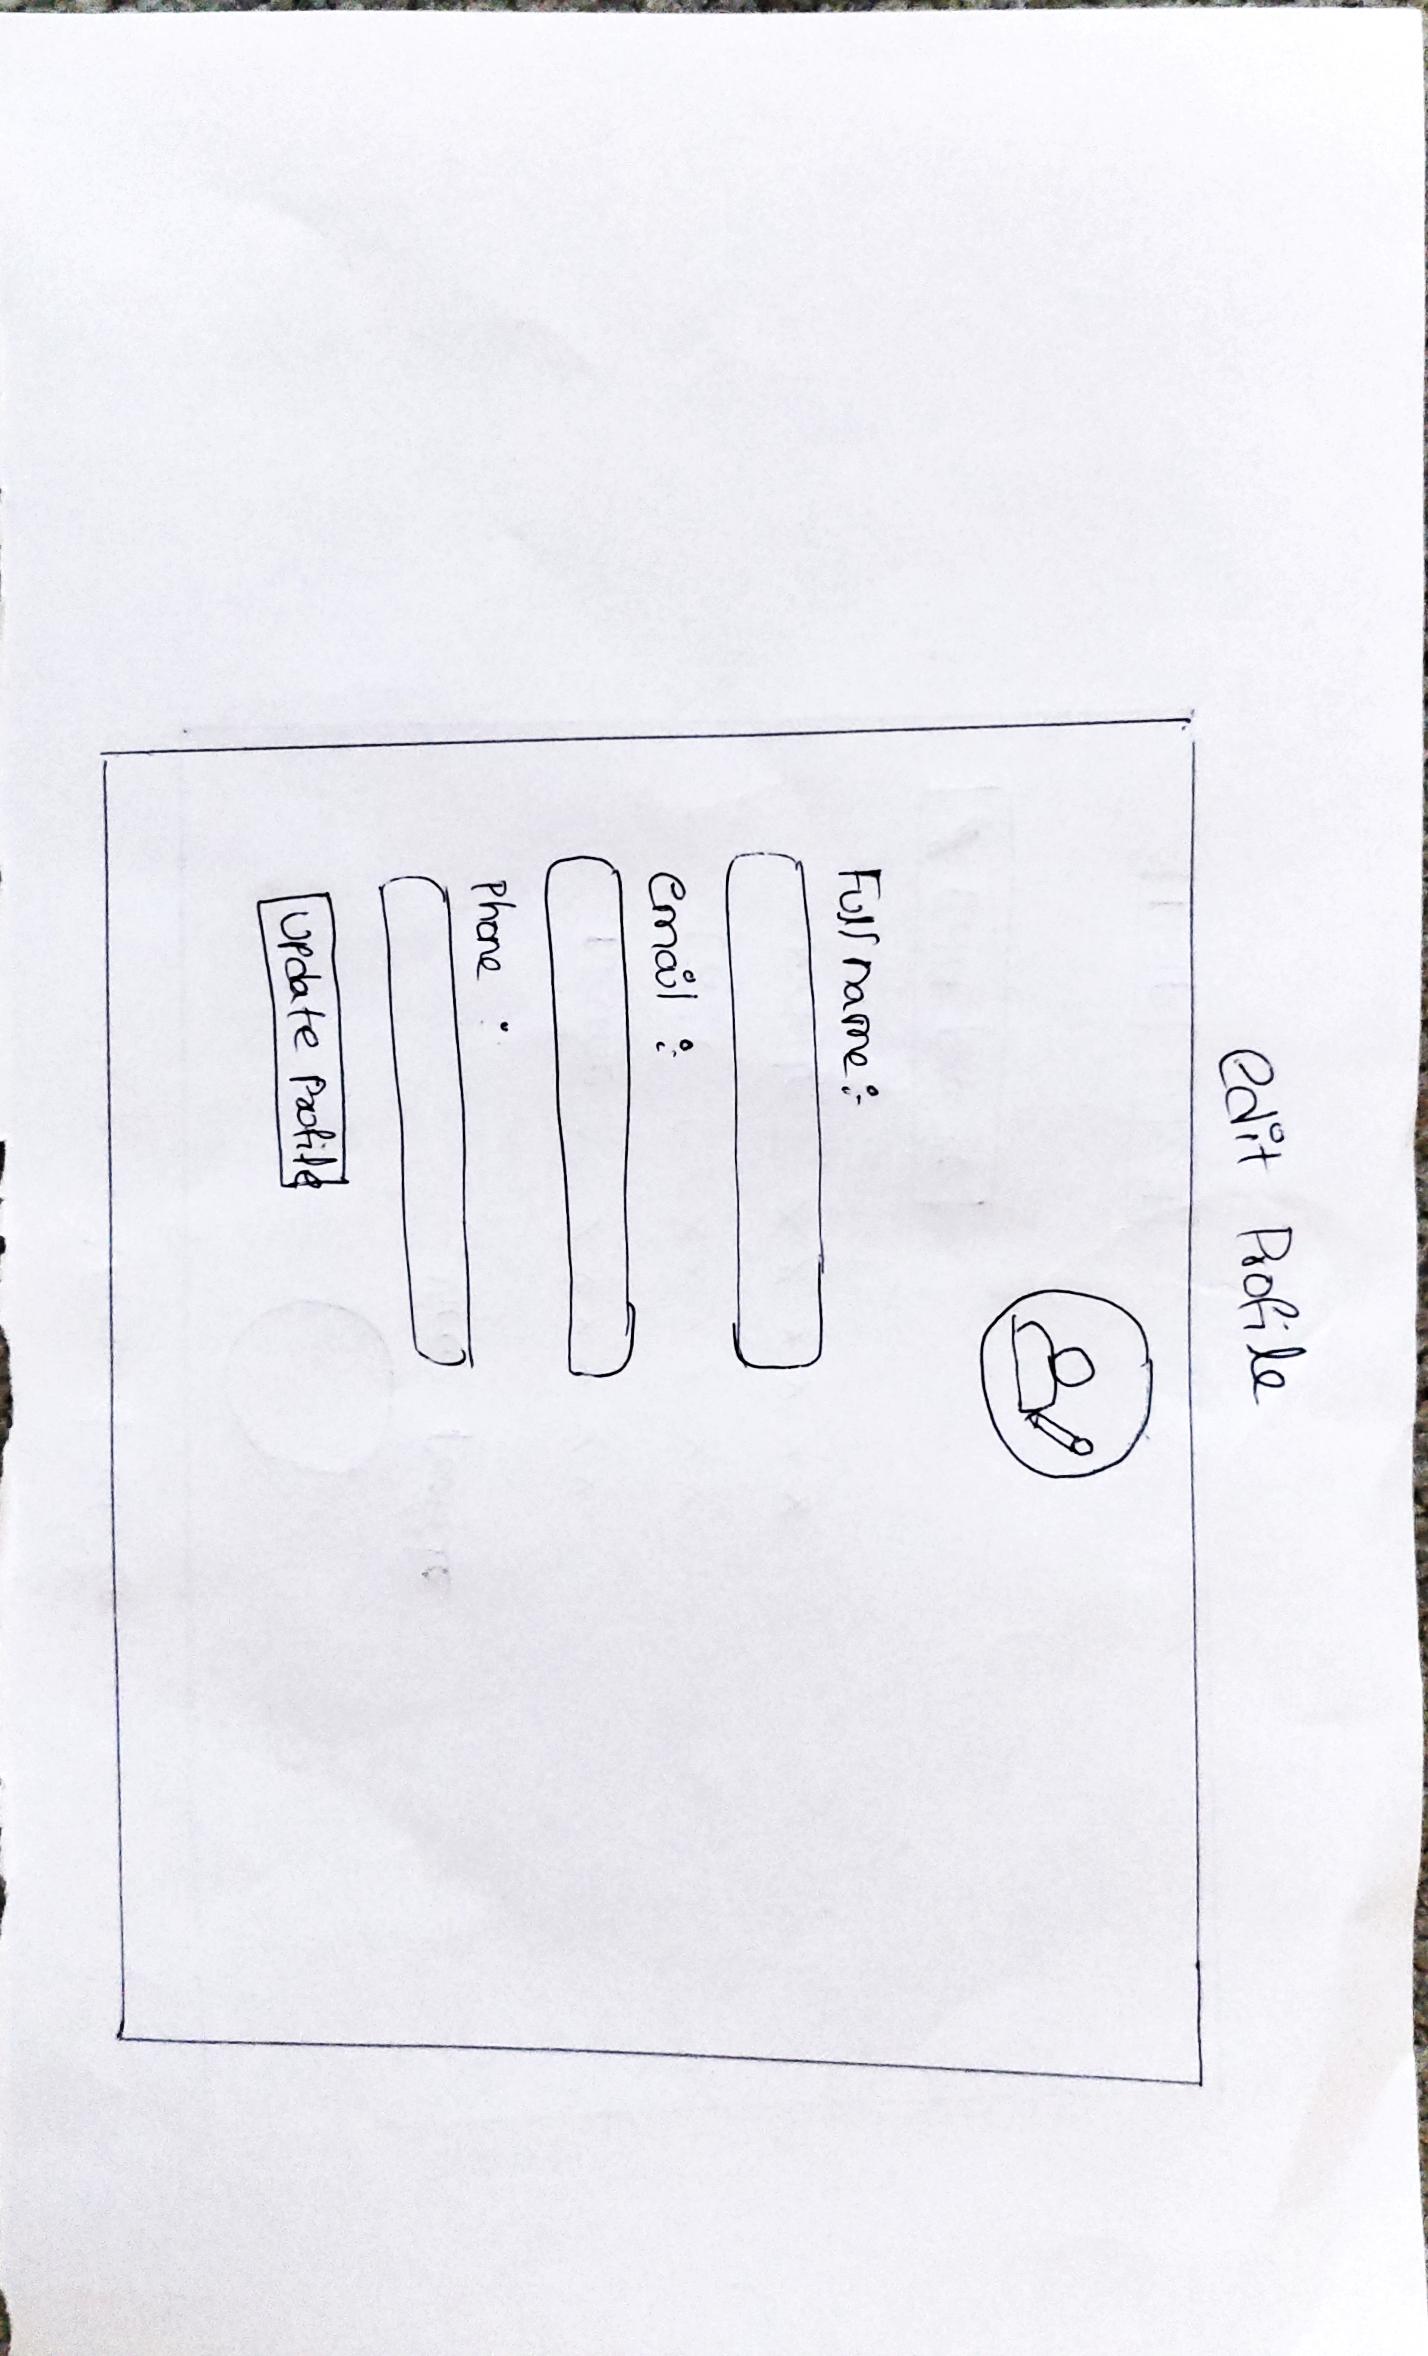 edit Profile
Full name :-
Email :
Phone :
Update Profile